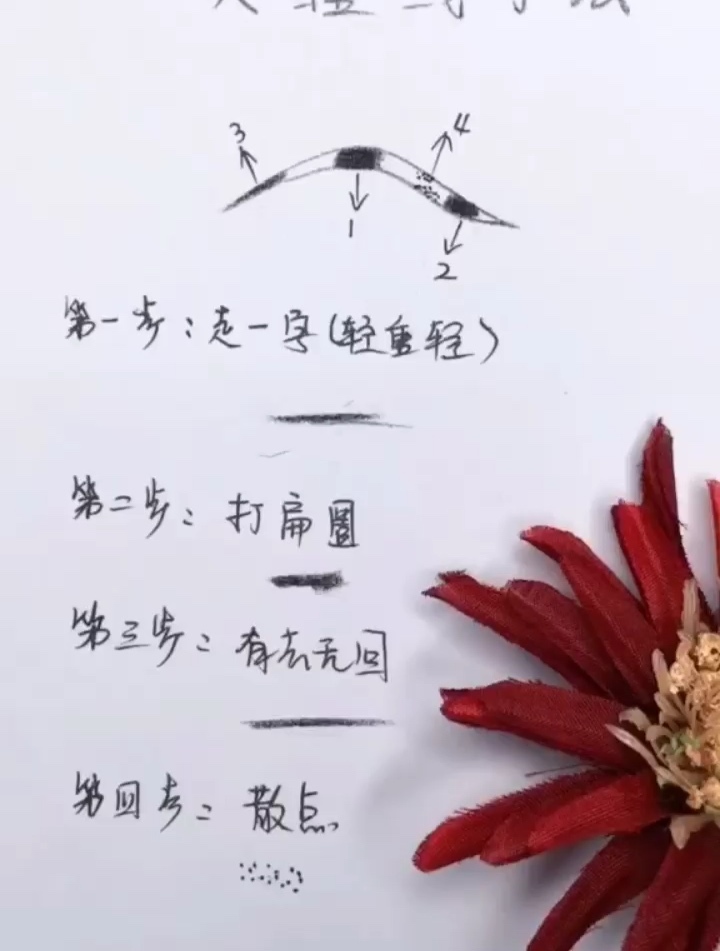 3
4
1
2
第一步：走一字（轻重轻）
第二步：打扁圈
第三步：有去无回
第四步：散点